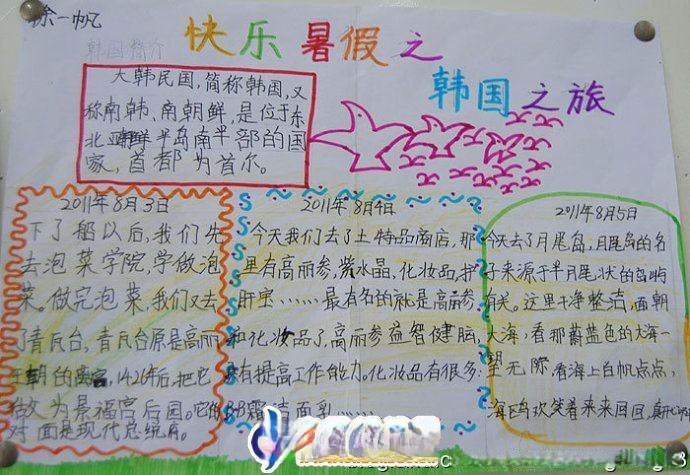 徐一帆
快乐暑假之
韩国之旅
韩国简介
大韩民国,简称韩国,又
称南韩、南朝鲜,是位于东
北亚朝鲜半岛南半部的国
家,首都为首尔。
2011年8月3日
下了船以后,我们先
去泡菜学院,学做泡
菜。做完泡菜,我们又去
了青瓦台,青瓦台原是高丽
王朝的离宫,1426年后,把它
做为景福宫后园。它的
对面是现代总统府。
2011年8月4日
今天我们去了土特品商店,那
里有高丽参,紫水晶,化妆品,护
肝宝……最有名的就是高丽参
和化妆品了,高丽参益智健脑,
有提高工作的能力。化妆品有很多:
BB霜洁面乳……
2011年8月5日
今天去了月尾岛,月尾岛的名
子来源于半月尾状的岛屿
有关。这里干净整洁,面朝
大海,看那蔚蓝色的大海一
望无际,看海上白帆点点,
海鸥欢笑着来来回回,